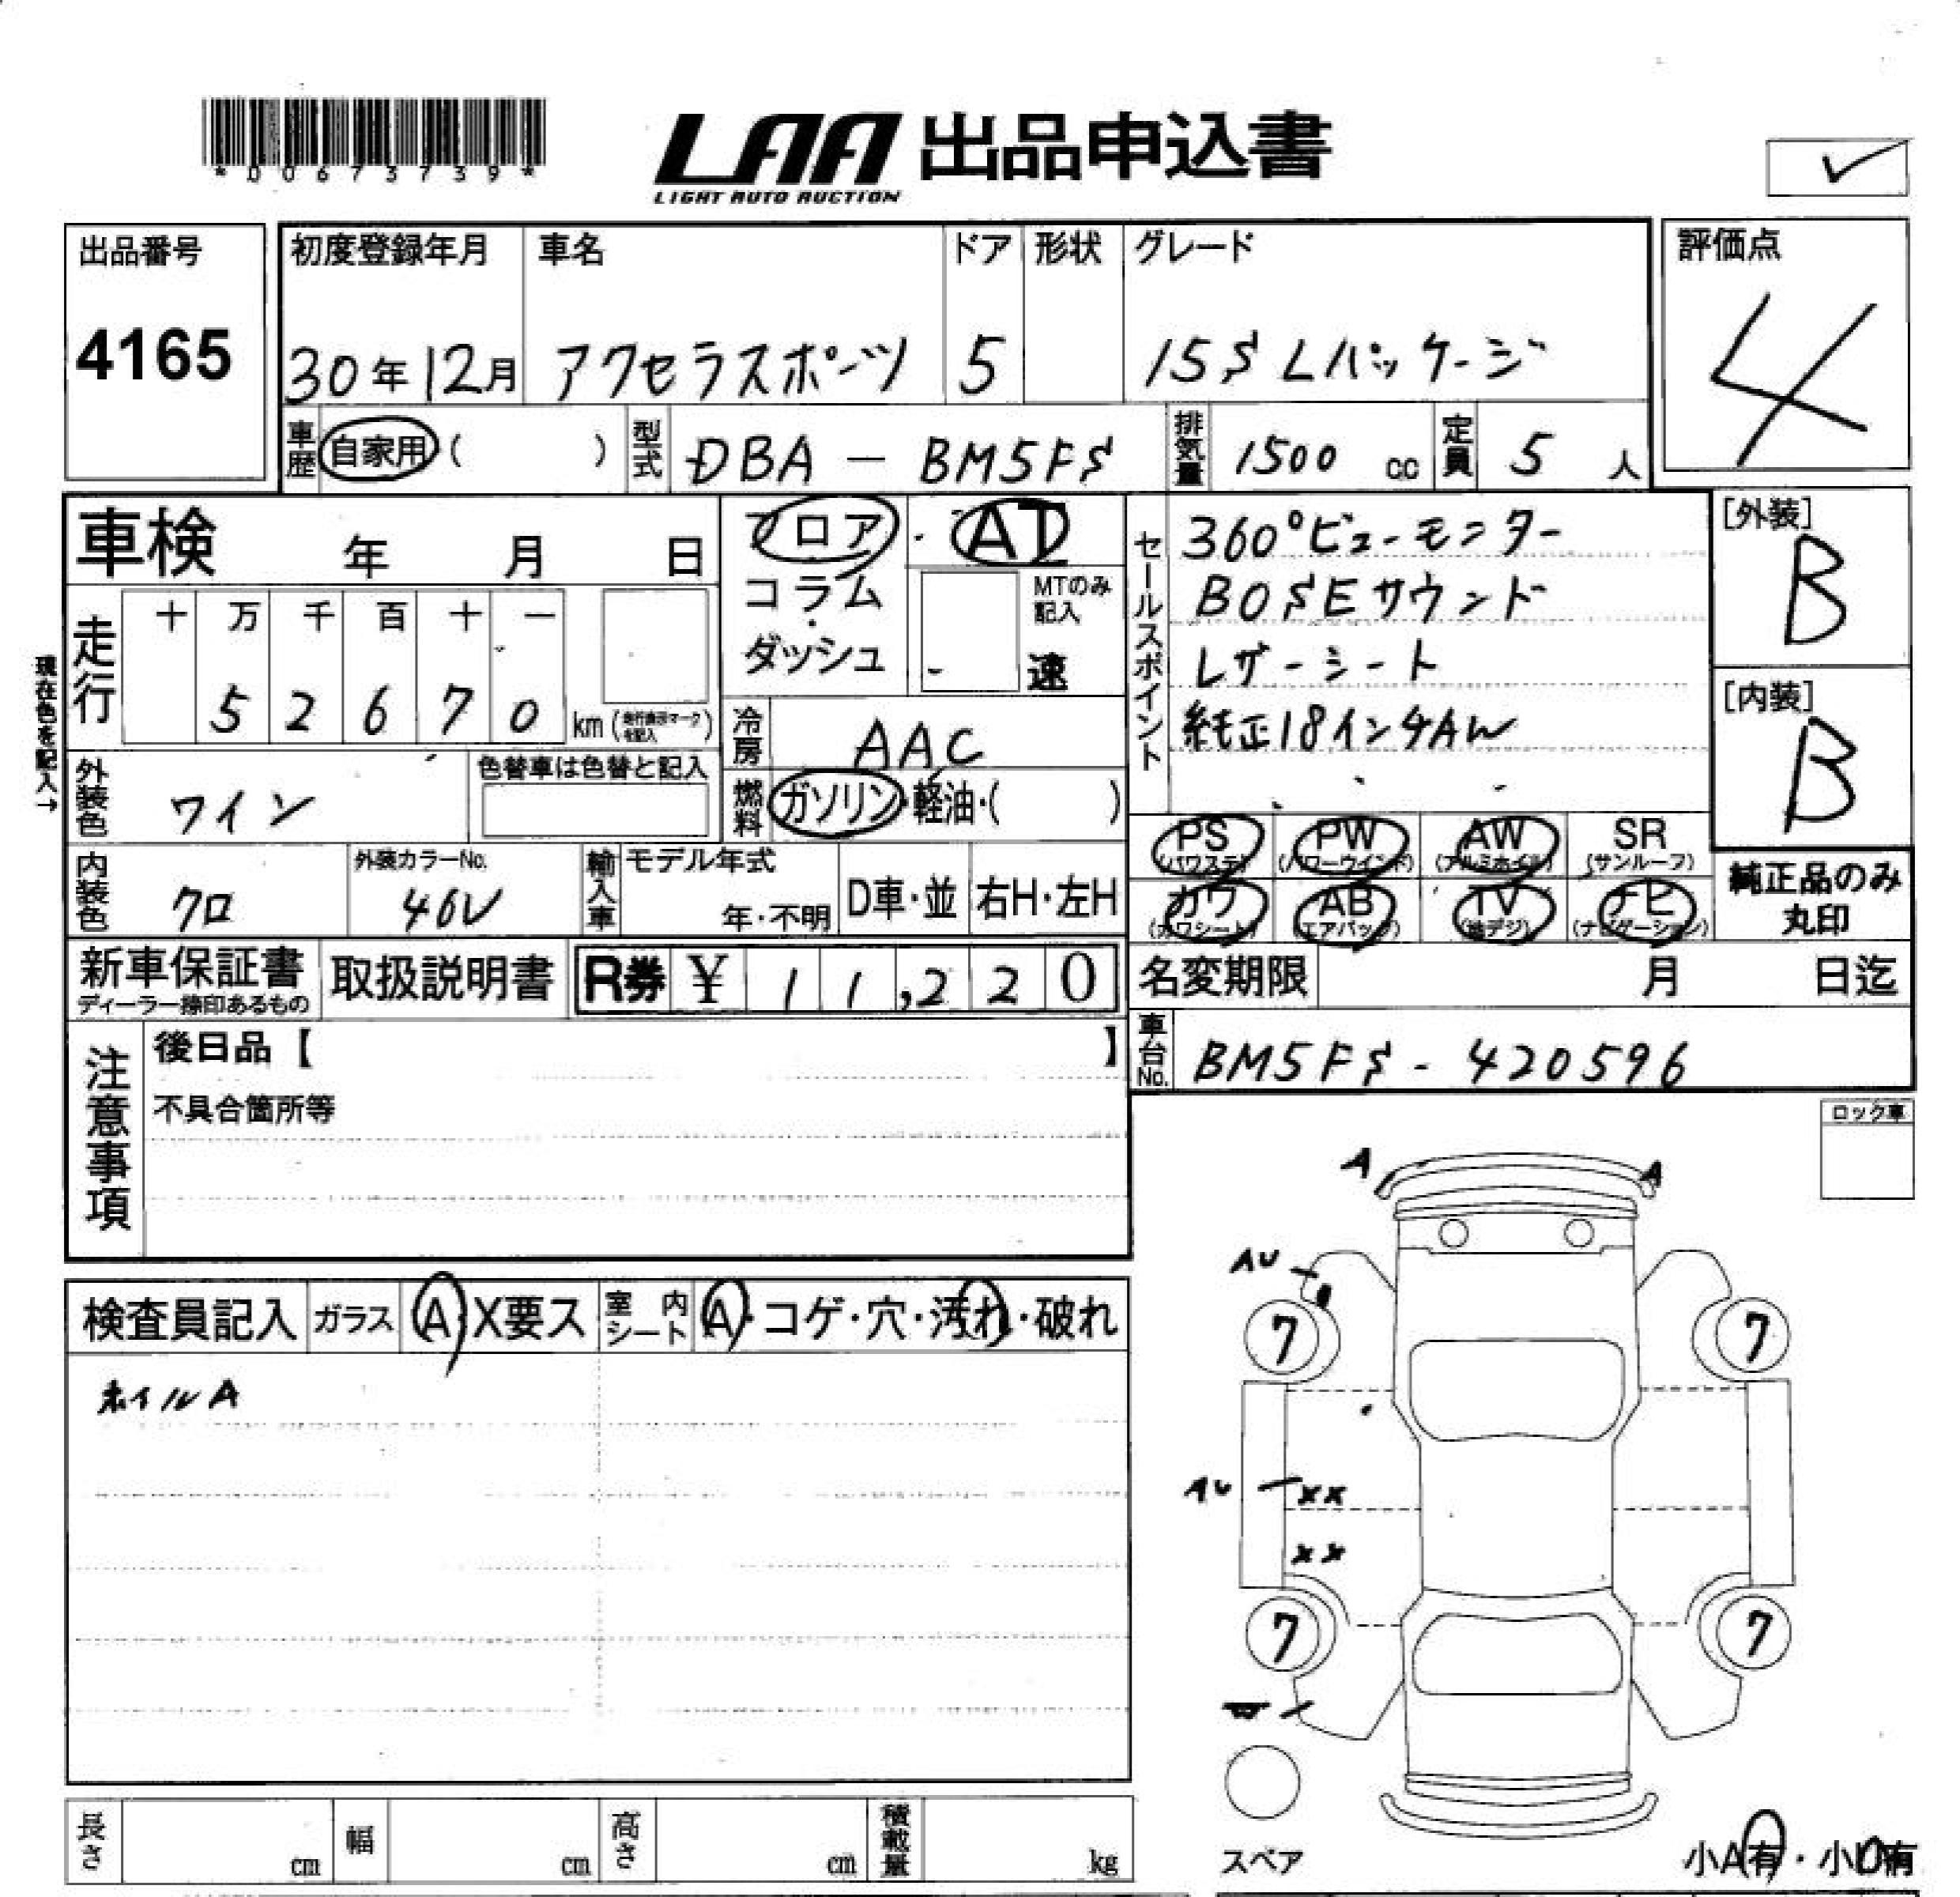 *00673739*
LAA 出品申込書
LIGHT AUTO AUCTION
出品番号
4165
初度登録年月
30年12月
車名
アクセラスポーツ
ドア
5
形状
グレード
15S Lパッケージ
評価点
4
車歴
自家用( )
型式
DBA - BM5FS
排気量
1500 cc
定員
5 人
車検 年 月 日
フロア・
コラム・
ダッシュ
AT
MTのみ
記入
速
セールスポイント
360°ビューモニター
BOSEサウンド
レザーシート
純正18インチAW
[外装]
B
[内装]
B
現在色を記入→
走行
十 万 千 百 十 一
5 2 6 7 0 km (走行表示マークを記入)
冷房
AAC
外装色
ワイン
色替車は色替と記入
燃料
ガソリン・軽油・( )
PS
(パワステ)
PW
(パワーウインド)
AW
(アルミホイル)
SR
(サンルーフ)
カワ
(カワシート)
AB
(エアバック)
TV
(地デジ)
ナビ
(ナビゲーション)
純正品のみ
丸印
内装色
クロ
外装カラーNo.
46V
輸入車
モデル年式
年・不明
D車・並
右H・左H
新車保証書
ディーラー捺印あるもの
取扱説明書
R券 ¥ 11,220
名変期限 月 日迄
車台No.
BM5FS - 420596
注意事項
後日品【 】
不具合箇所等
ロック車
A A
AU
7 7
AU XX
XX
7 7
スペア
小A有・小U有
検査員記入
ガラス
A X要ス
室内シート
A・コゲ・穴・汚れ・破れ
ホイルA
長さ cm
幅 cm
高さ cm
積載量 kg